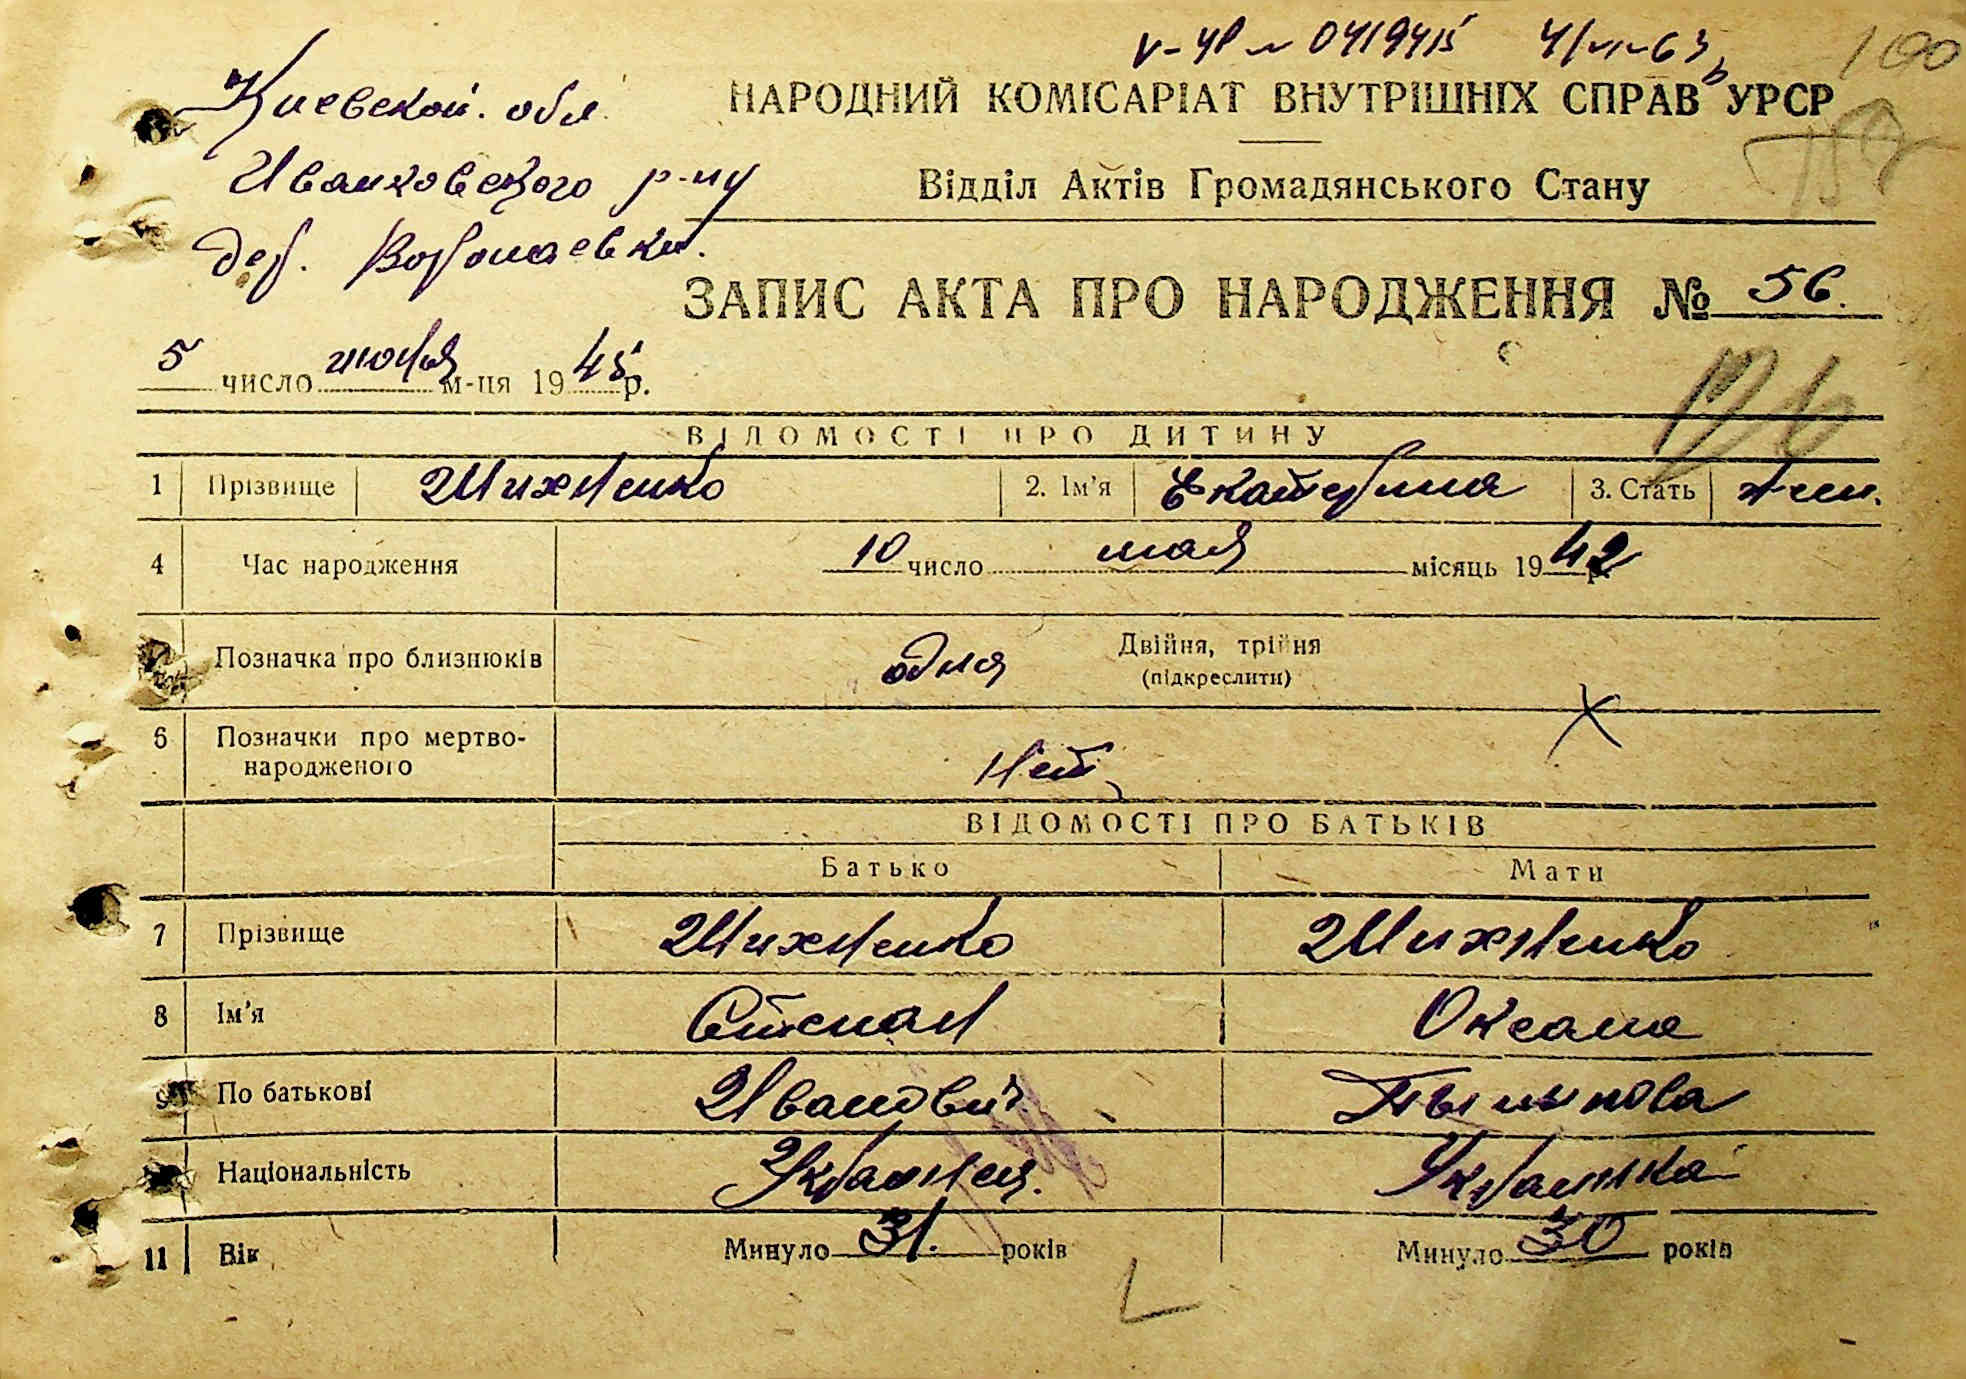 V-ЧР № 041941
НАРОДНИЙ КОМІСАРІАТ ВНУТРІШНІХ СПРАВ УРСР
Киевской обл
Відділ Актів Громадянського Стану
Иванковского р-ну
дер.
ЗАПИС АКТА ПРО НАРОДЖЕННЯ № 56.
5 число июня м-ця 1945 р.
ВІДОМОСТІ ПРО ДИТИНУ
1 Прізвище Шихненко 2. Ім'я Екатерина 3. Стать жен.
4 Час народження 10 число мая місяць 1942 р.
Позначка про близнюків одна Двійня, трійня
(підкреслити)
6 Позначки про мертво-
народженого Нет
ВІДОМОСТІ ПРО БАТЬКІВ
Батько Мати
7 Прізвище Шихненко Шихненко
8 Ім'я Степан Оксана
9 По батькові Иванович
Національність Украинец. Украинка
11 Вік Минуло 31. років Минуло 30 років